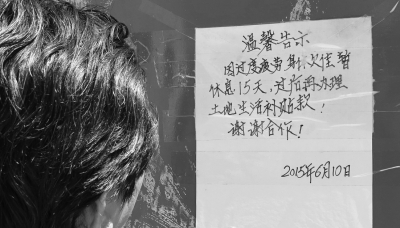 温馨告示
因过度疲劳,欠佳暂
休息15天,过后再办理
土地生活补贴款!
谢谢合作!
2015年6月10日